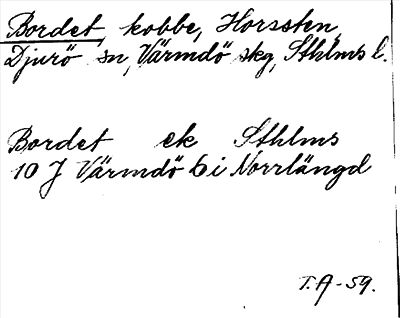 Bordet, kobbe, Horssten,
Djurö sn, Värmdö skg, Sthlms l.
Bordet ek Sthlms
10 J Värmdö 6 i Norrlängd
T.A-59.